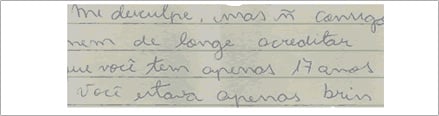 Me desculpe, mas ñ consigo
nem de longe acreditar
ue você tem apenas 17 anos
você estava apenas brin